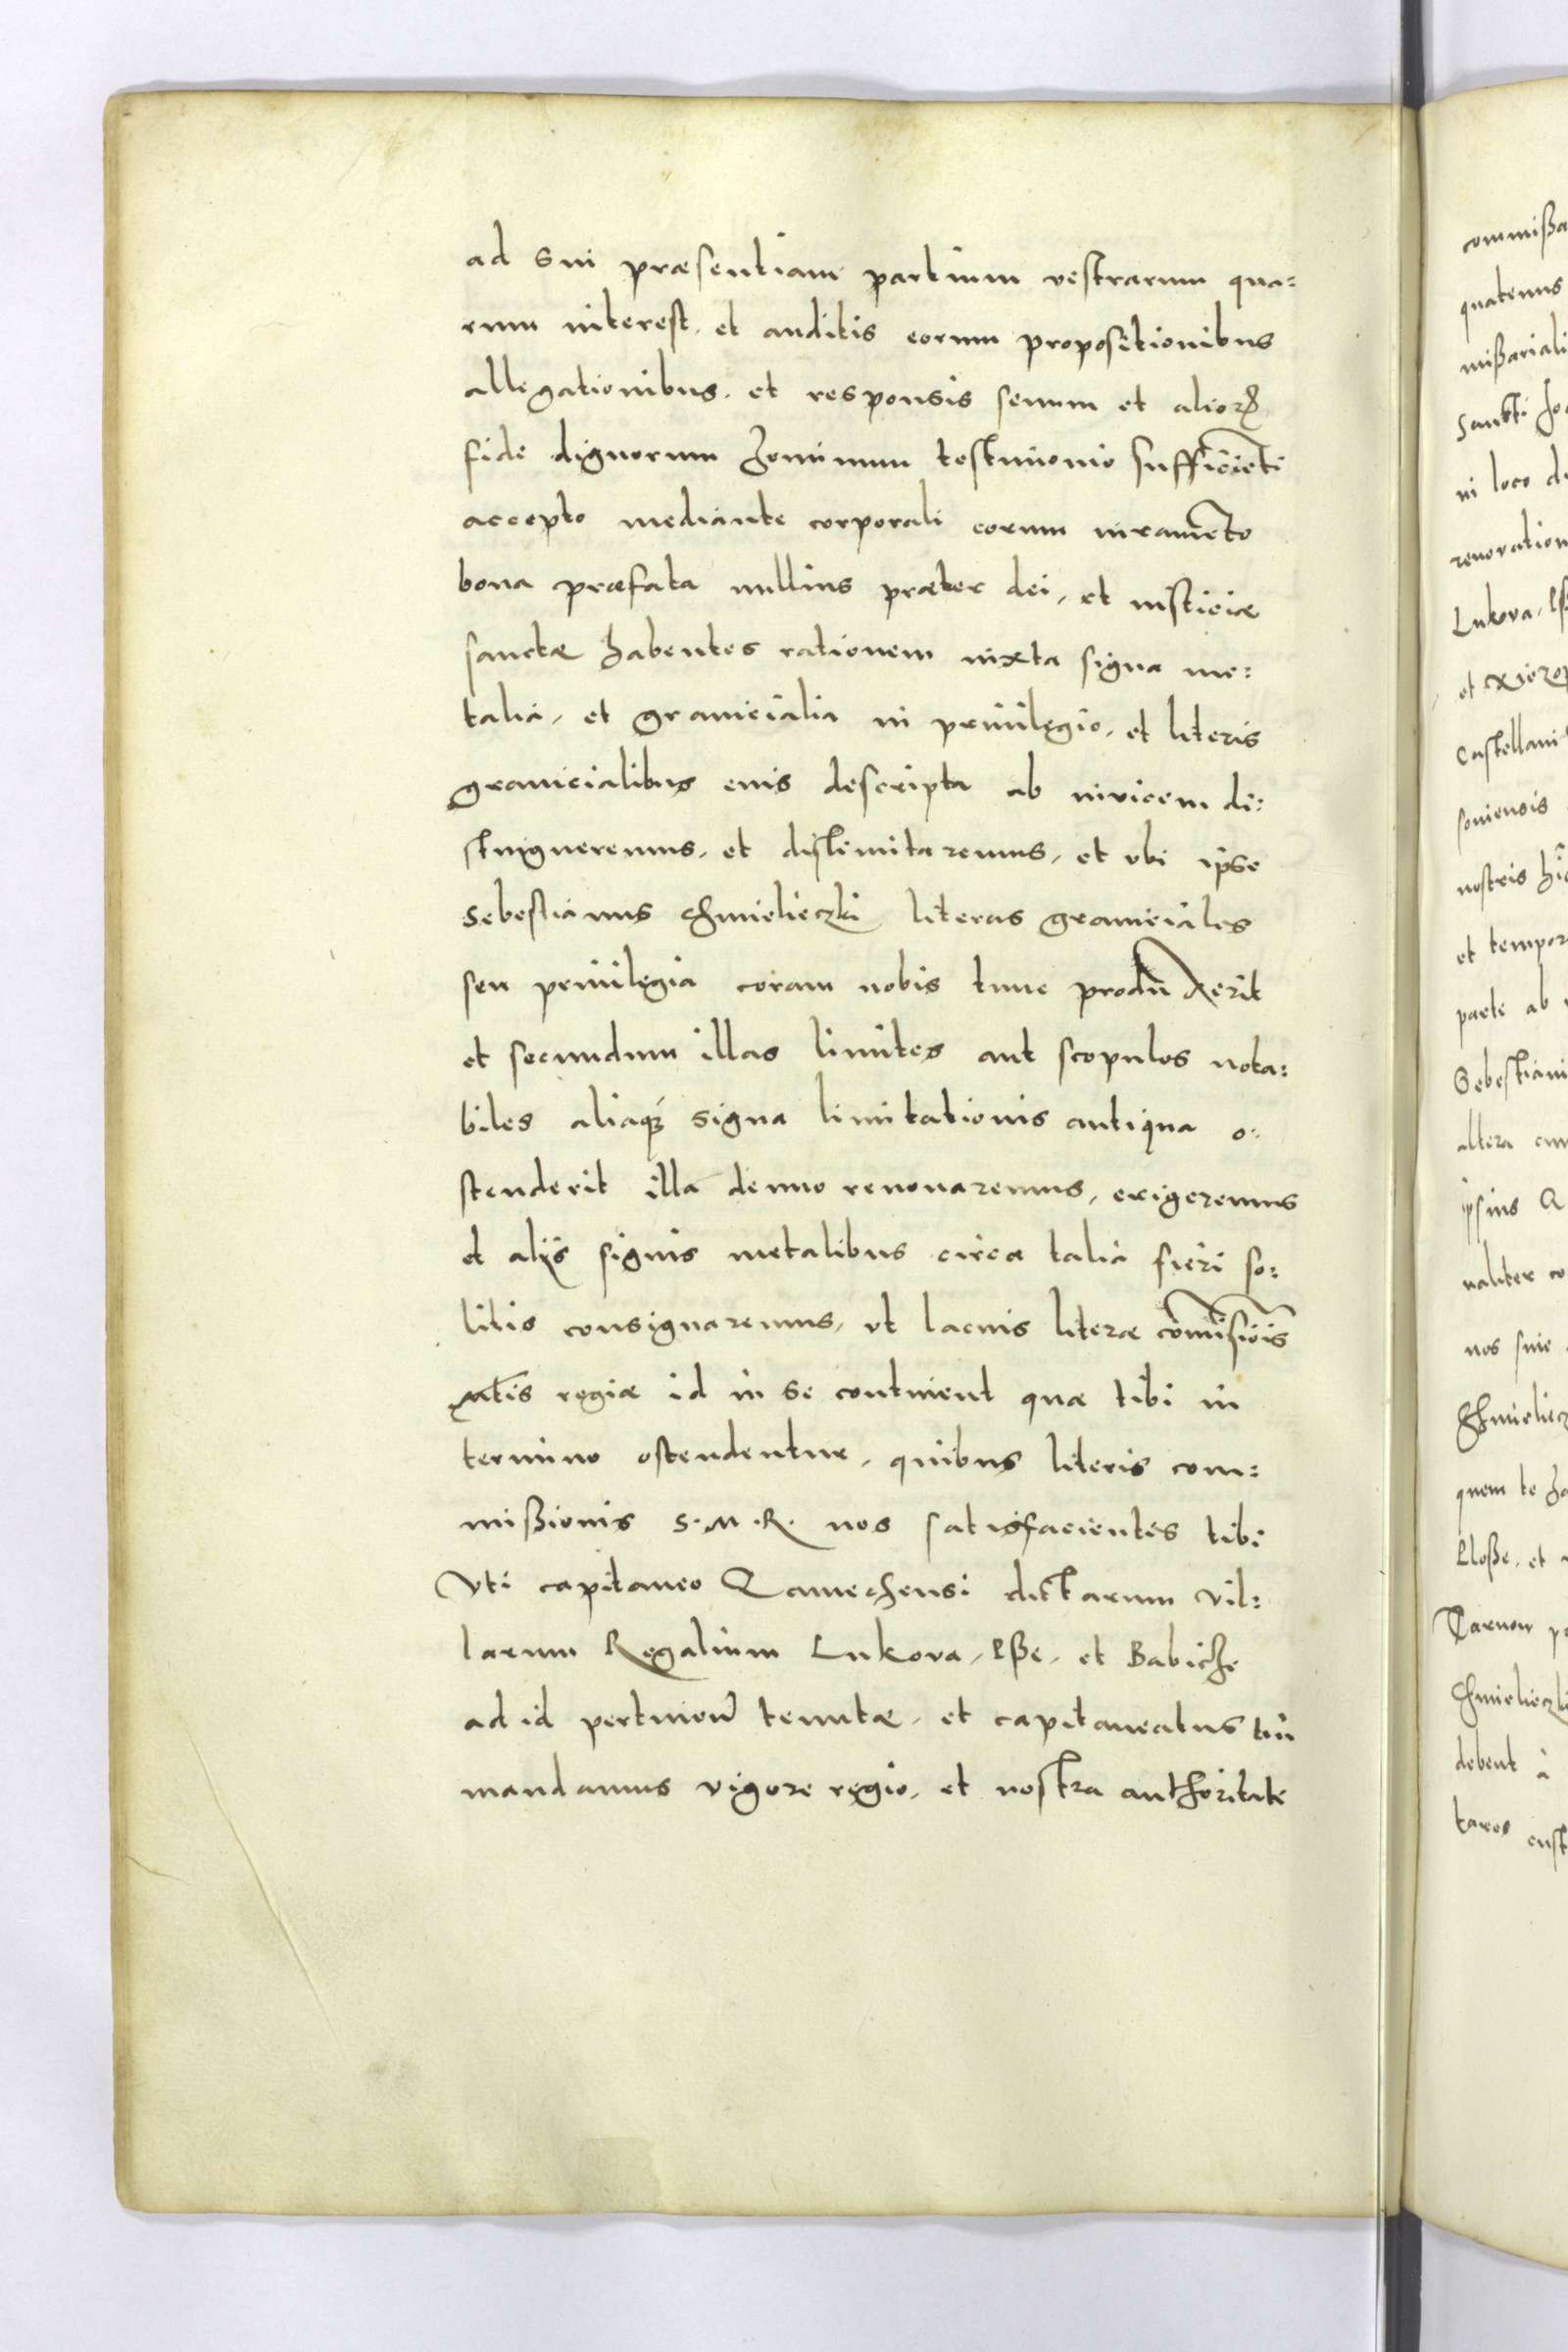 ad sui præsentiam partium vestrarum qua:
rum interest, et auditis eorum propositionibus
allegationibus, et responsis senum et alioꝝ
fide dignorum hominum testimonio sufficiẽti
accepto mediante corporali eorum iuramẽto
bona præfata nullius præter dei, et iusticiæ
sanctæ habentes rationem iuxta signa me:
talia, et granicialia in priuilegio, et literis
granicialibus eius descripta ab inuicem di:
stingueremus, et dislimitaremus, et vbi ipse
Sebestianus Chmielieczki literas graniciales
seu priuilegia coram nobis tunc produxerit
et secundum illas limites aut scopulos nota:
biles aliaqꝫ signa limitationis antiqua o:
stenderit illa denuo renouaremus, erigeremus
et alijs signis metalibus circa talia fieri so:
litis consignaremus, vt lacius literæ cõmissiõis
Mtis regiæ id in se continent quæ tibi in
termino ostendentur, quibus literis com:
mißionis S.M.R. nos satisfacientes tibi
Vti capitaneo Camechensi dictarum vil:
larum Regalium Lukova, Lße, et Babiche
ad id pertinen̄ tenutæ, et capitaneatus tui
mandamus vigore regio, et nostra authoritate
commißa
quatenus
mißariali
Sancti
in loco
renovation
Lukova,
et
Castellani
nostris
et tempor
parte ab
Sebestiani
altera cum
ipsius
naliter co
nos siue
Chmieliecz
quem te
Lloße, et
Tarnow
Chmieliecki
debent à